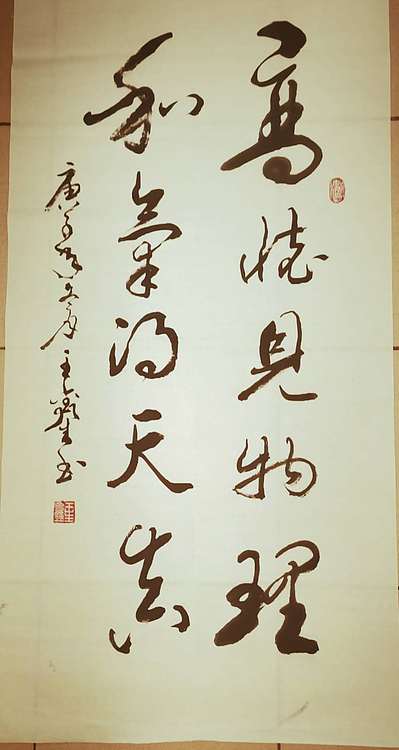 高懷見物理
和氣得天真
庚子 王 书